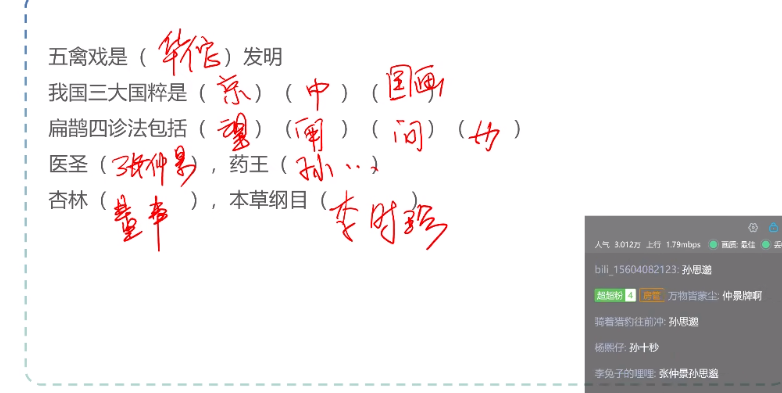 五禽戏是（华佗）发明
我国三大国粹是（京）（中）（国画）
扁鹊四诊法包括（望）（闻）（问）（切）
医圣（张仲景），药王（孙…）
杏林（董奉），本草纲目（李时珍）
人气 3.012万 上行 1.79mbps 画质: 最佳 丢
bili_15604082123: 孙思邈
超超粉 4 房管 万物皆蒙尘: 仲景牌啊
骑着猎豹往前冲: 孙思邈
杨熙仔: 孙十秒
李兔子的哩哩: 张仲景孙思邈